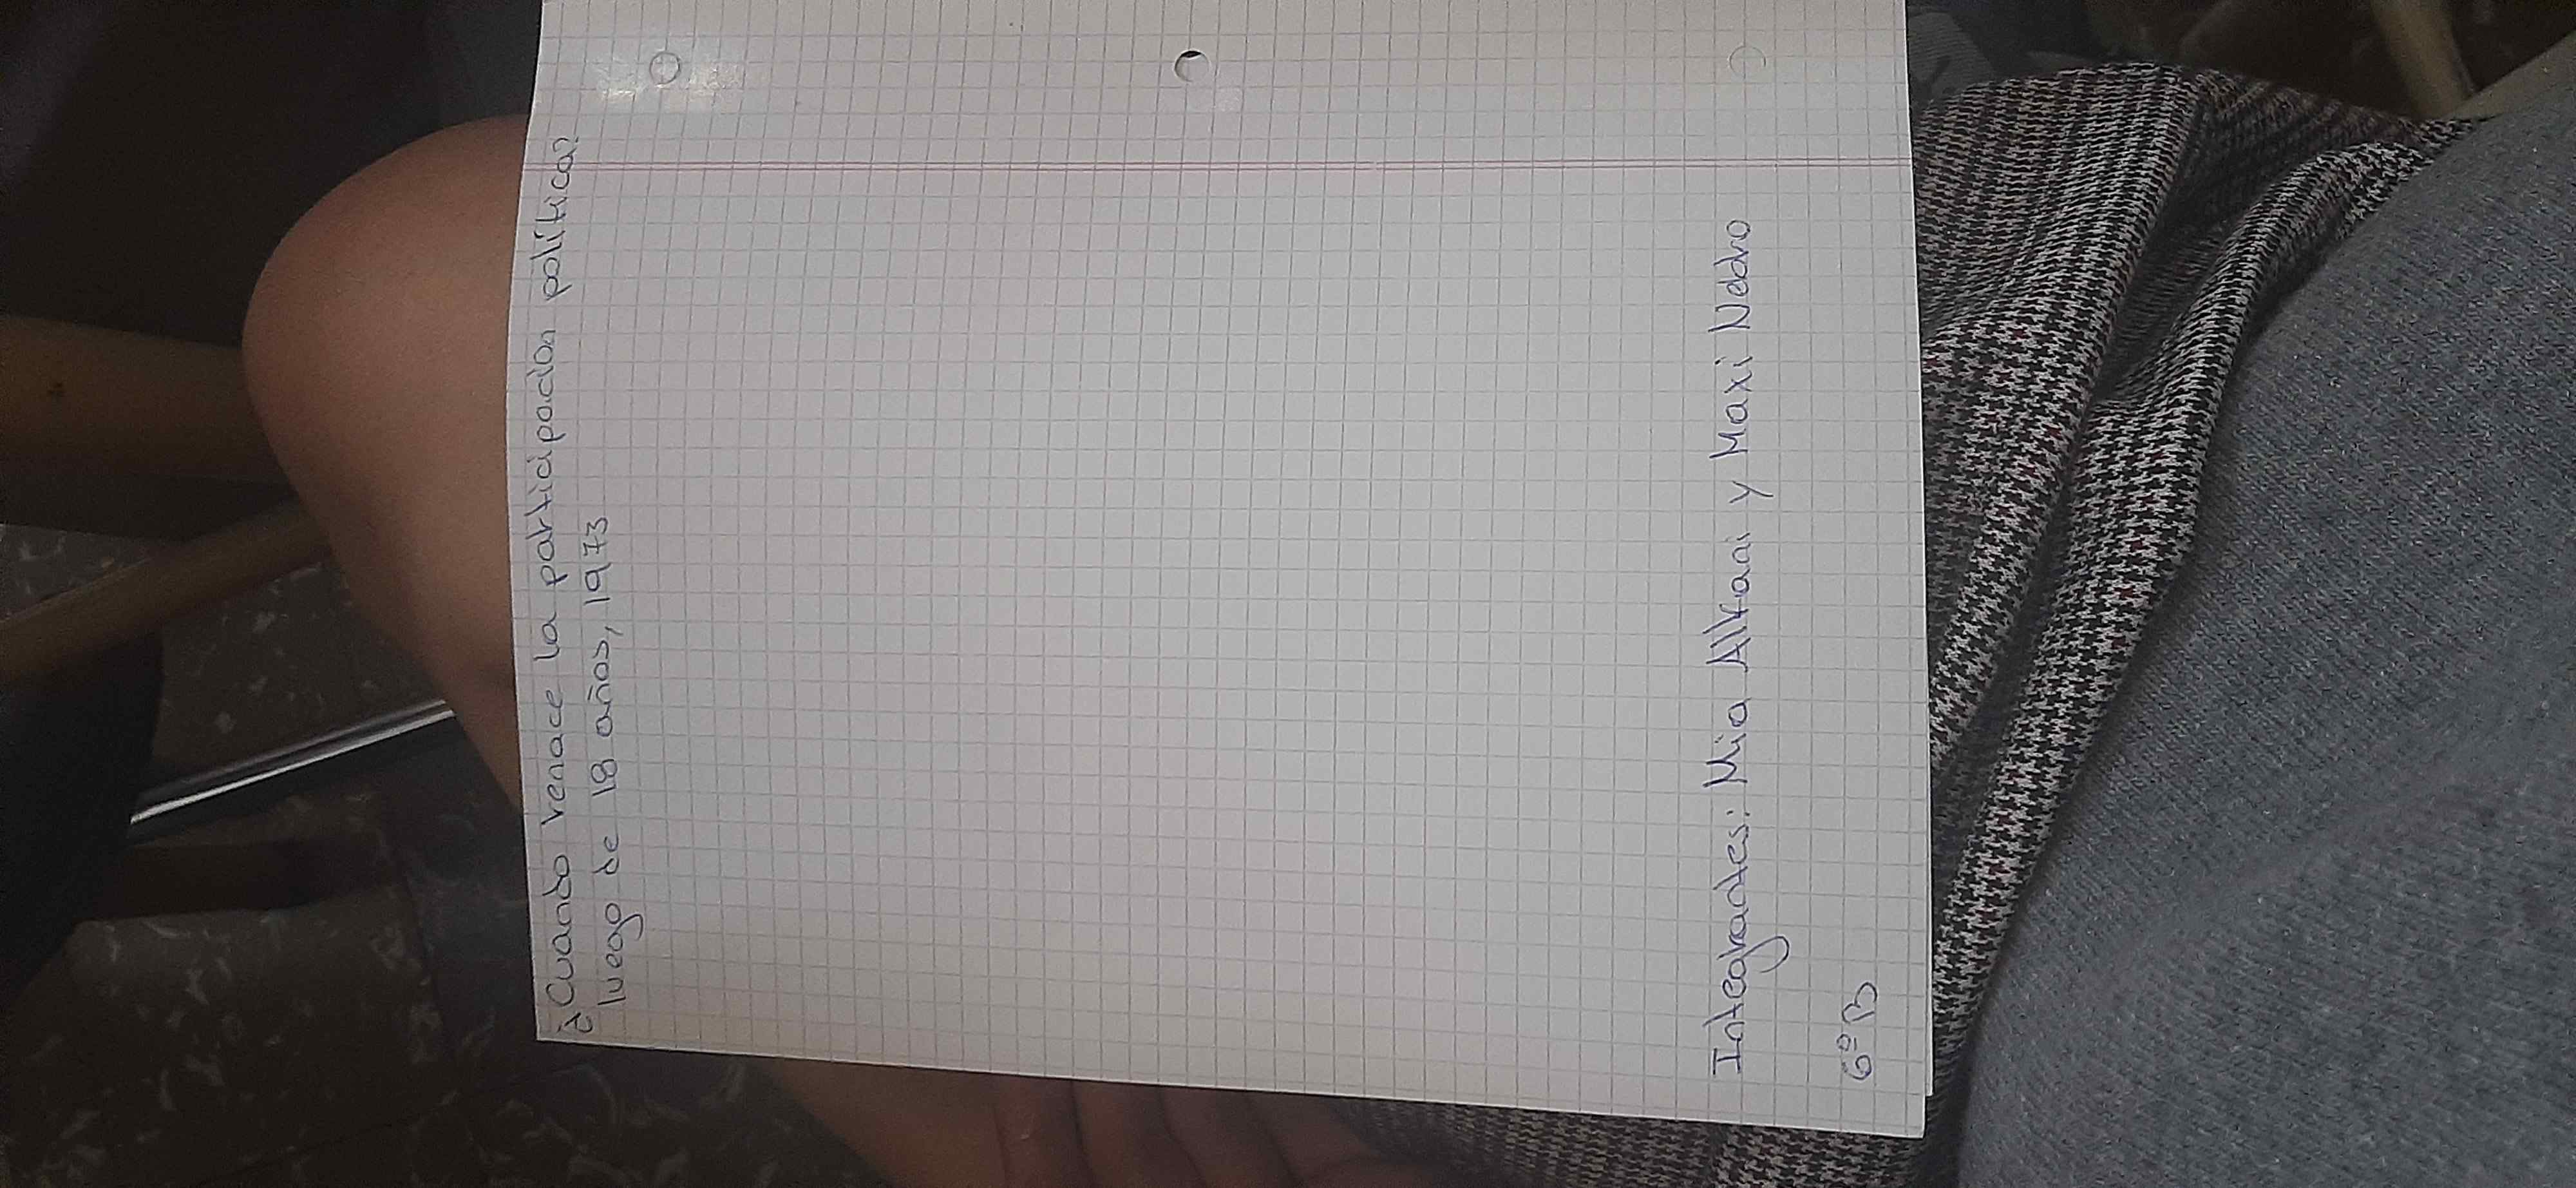 ¿Cuando renace la participacion política?
luego de 18 años, 1973
Integrantes: Mia Alfani y Maxi
6º B